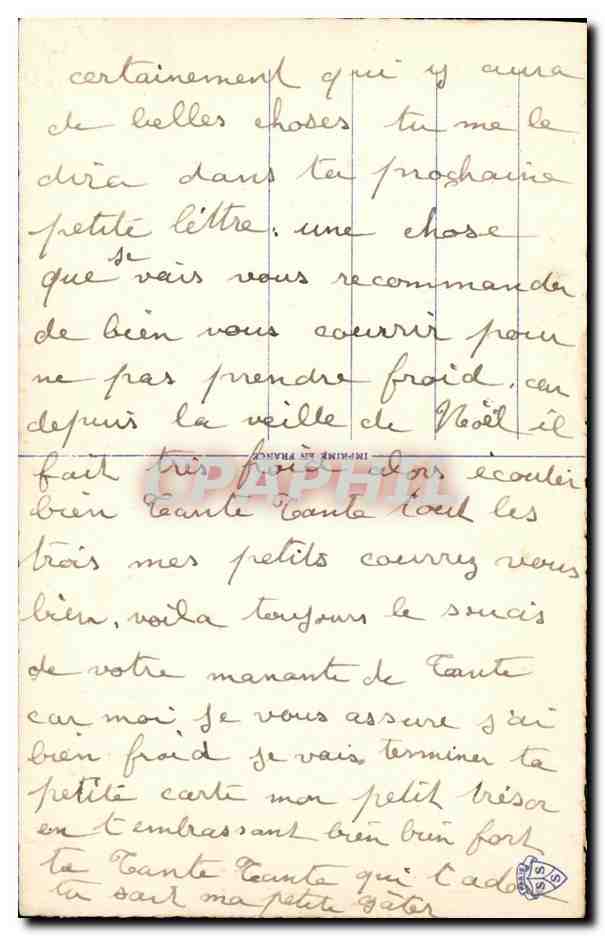 certainement qui y aura
de belles choses tu me le
dira dans ta prochaine
petite léttre. une chose
que je vais vous recommander
de bien vous courrir pour
ne pas prendre froid. car
depuis la veille de Noël il
IMPRIMÉ EN FRANCE
fait très froid alors écouter
CPAPHIL
bien Tante Tante tout les
trois mes petits courrez vous
bien, voila toujours le soucis
de votre de Tante
car moi je vous assure j'ai
bien froid je vais terminer ta
petite carte mon petit trésor
en t'embrassant bien bien fort
ta Tante Tante qui t'adore
tu sait ma petite gâter